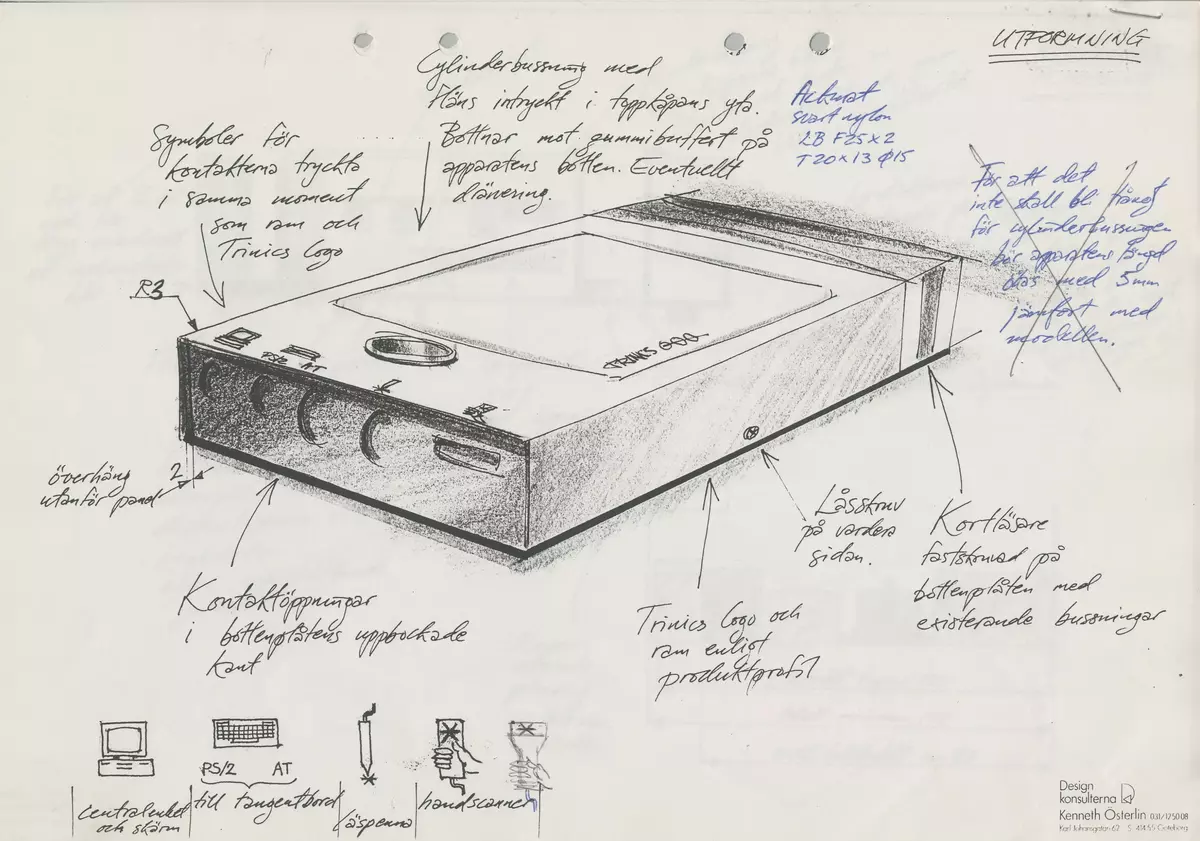 UTFORMNING
Cylinderbussning med
fläns intryckt i toppkåpans yta.
Bottnar mot gummibuffert på
apparatens botten. Eventuellt
dränering.
Ackurat
svart nylon
LB F25x2
T20x13 Ø15
För att det
inte skall bli trångt
för cylinderbussningen
bör apparatens längd
ökas med 5mm
jämfört med
modellen.
Symboler för
kontakterna tryckta
i samma moment
som ram och
Trinics logo
R3
PS/2
AT
TRINICS
överhäng
utanför panel
2
Låsskruv
på vardera
sidan.
Kortläsare
fastskruvad på
bottenplåten med
existerande bussningar
Kontaktöppningar
i bottenplåtens uppbockade
kant
Trinics logo och
ram enligt
produktprofil
PS/2 AT
centralenhet
och skärm
till tangentbord
läspenna
handscanner
Design
konsulterna
Kenneth Österlin 031/125008
Karl Johansgatan 62 S 414 55 Göteborg